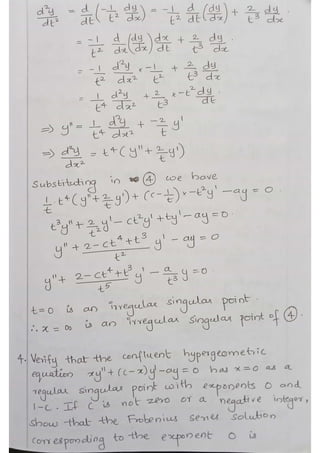 d²y/dt² = d/dt (-1/t² dy/dx) = -1/t² d/dt (dy/dx) + 2/t³ dy/dx
= -1/t² d/dx (dy/dx) dx/dt + 2/t³ dy/dx
= -1/t² d²y/dx² × -1/t² + 2/t³ dy/dx
= 1/t⁴ d²y/dx² + 2/t³ × -t² dy/dt
⇒ y'' = 1/t⁴ d²y/dx² + -2/t y'
⇒ d²y/dx² = t⁴ (y'' + 2/t y')
Substituting in ④ we have
1/t · t⁴ (y'' + 2/t y') + (c - 1/t) × -t² y' - ay = 0
t³y'' + 2/t² y' - ct²y' + ty' - ay = 0
y'' + 2 - ct⁴ + t³/t² y' - ay = 0
y'' + 2 - ct⁴ + t³/t⁵ y' - a/t³ y = 0
t = 0 is an irregular singular point.
∴ x = ∞ is an irregular singular point of ④.
4. Verify that the confluent hypergeometric
equation xy'' + (c-x)y' - ay = 0 has x = 0 as a
regular singular point with exponents 0 and
1-c. If c is not zero or a negative integer,
show that the Frobenius series solution
corresponding to the exponent 0 is